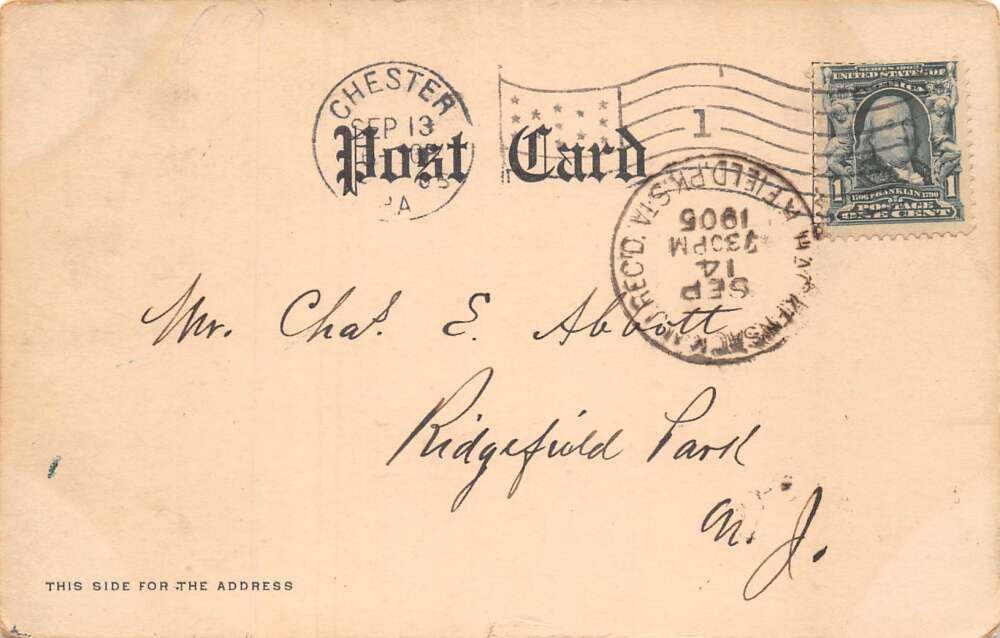 CHESTER
SEP 13
PA
1
Post Card
SERIES 1902
UNITED STATES OF AMERICA
1 1706 FRANKLIN 1790 1
POSTAGE
ONE CENT
HACKENSACK N.J. REC'D. FIELD PK. STA.
SEP
14
730PM
1905
Mr. Chas. E. Abbott
Ridgefield Park
N. J.
THIS SIDE FOR THE ADDRESS